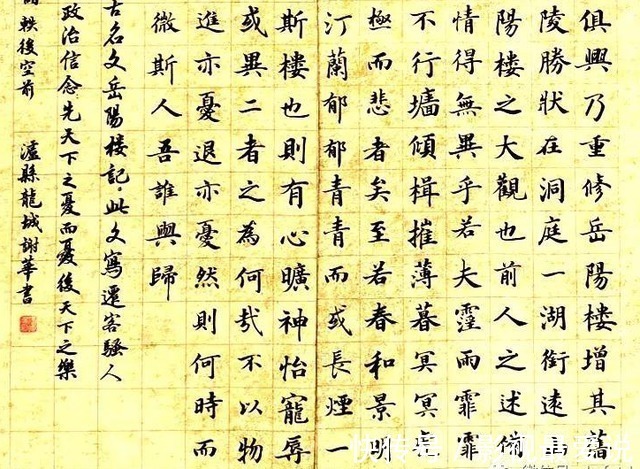 俱興乃重修岳陽樓增其舊
陵勝狀在洞庭一湖銜遠
陽樓之大觀也前人之述備
情得無異乎若夫霪雨霏霏
不行墻傾楫摧薄暮冥冥
極而悲者矣至若春和景
汀蘭郁郁青青而或長煙一
斯樓也則有心曠神怡寵辱
或異二者之為何哉不以物
進亦憂退亦憂然則何時而
微斯人吾誰與歸
古名文岳陽楼記。此文寫遷客騷人
政治信念先天下之憂而憂後天下之樂
軼後空前 瀘縣龍城謝華書
快传号